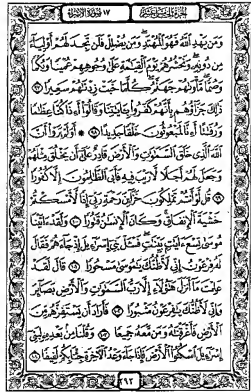 الجزء الخامس عشر ١٧ سورة الإسراء
وَمَن يَهْدِ ٱللَّهُ فَهُوَ ٱلْمُهْتَدِ وَمَن يُضْلِلْ فَلَن تَجِدَ لَهُمْ أَوْلِيَآءَ
مِن دُونِهِۦ وَنَحْشُرُهُمْ يَوْمَ ٱلْقِيَٰمَةِ عَلَىٰ وُجُوهِهِمْ عُمْيًا وَبُكْمًا
وَصُمًّا مَّأْوَىٰهُمْ جَهَنَّمُ كُلَّمَا خَبَتْ زِدْنَٰهُمْ سَعِيرًا ٩٧
ذَٰلِكَ جَزَآؤُهُم بِأَنَّهُمْ كَفَرُوا۟ بِـَٔايَٰتِنَا وَقَالُوٓا۟ أَءِذَا كُنَّا عِظَٰمًا
وَرُفَٰتًا أَءِنَّا لَمَبْعُوثُونَ خَلْقًا جَدِيدًا ٩٨ أَوَلَمْ يَرَوْا۟ أَنَّ
ٱللَّهَ ٱلَّذِى خَلَقَ ٱلسَّمَٰوَٰتِ وَٱلْأَرْضَ قَادِرٌ عَلَىٰٓ أَن يَخْلُقَ مِثْلَهُمْ
وَجَعَلَ لَهُمْ أَجَلًا لَّا رَيْبَ فِيهِ فَأَبَى ٱلظَّٰلِمُونَ إِلَّا كُفُورًا
٩٩ قُل لَّوْ أَنتُمْ تَمْلِكُونَ خَزَآئِنَ رَحْمَةِ رَبِّىٓ إِذًا لَّأَمْسَكْتُمْ
خَشْيَةَ ٱلْإِنفَاقِ وَكَانَ ٱلْإِنسَٰنُ قَتُورًا ١٠٠ وَلَقَدْ ءَاتَيْنَا
مُوسَىٰ تِسْعَ ءَايَٰتٍۭ بَيِّنَٰتٍ فَسْـَٔلْ بَنِىٓ إِسْرَٰٓءِيلَ إِذْ جَآءَهُمْ فَقَالَ
لَهُۥ فِرْعَوْنُ إِنِّى لَأَظُنُّكَ يَٰمُوسَىٰ مَسْحُورًا ١٠١ قَالَ لَقَدْ
عَلِمْتَ مَآ أَنزَلَ هَٰٓؤُلَآءِ إِلَّا رَبُّ ٱلسَّمَٰوَٰتِ وَٱلْأَرْضِ بَصَآئِرَ
وَإِنِّى لَأَظُنُّكَ يَٰفِرْعَوْنُ مَثْبُورًا ١٠٢ فَأَرَادَ أَن يَسْتَفِزَّهُم مِّنَ
ٱلْأَرْضِ فَأَغْرَقْنَٰهُ وَمَن مَّعَهُۥ جَمِيعًا ١٠٣ وَقُلْنَا مِنۢ بَعْدِهِۦ لِبَنِىٓ
إِسْرَٰٓءِيلَ ٱسْكُنُوا۟ ٱلْأَرْضَ فَإِذَا جَآءَ وَعْدُ ٱلْءَاخِرَةِ جِئْنَا بِكُمْ لَفِيفًا ١٠٤
٢٩٢